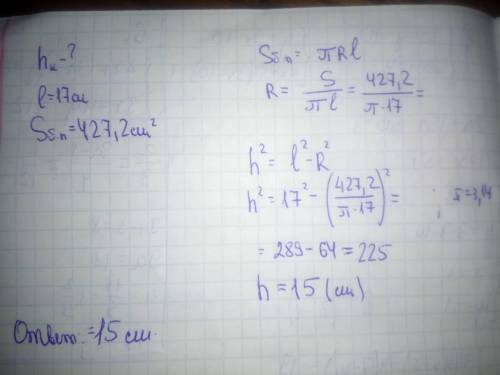 hк - ?
l = 17 см
Sб.п = 427,2 см²
Sб.п = πRl
R = S/(πl) = 427,2/(π·17) =
h² = l² - R²
h² = 17² - (427,2/(π·17))² = ; π=3,14
= 289 - 64 = 225
h = 15 (см)
Ответ: = 15 см.